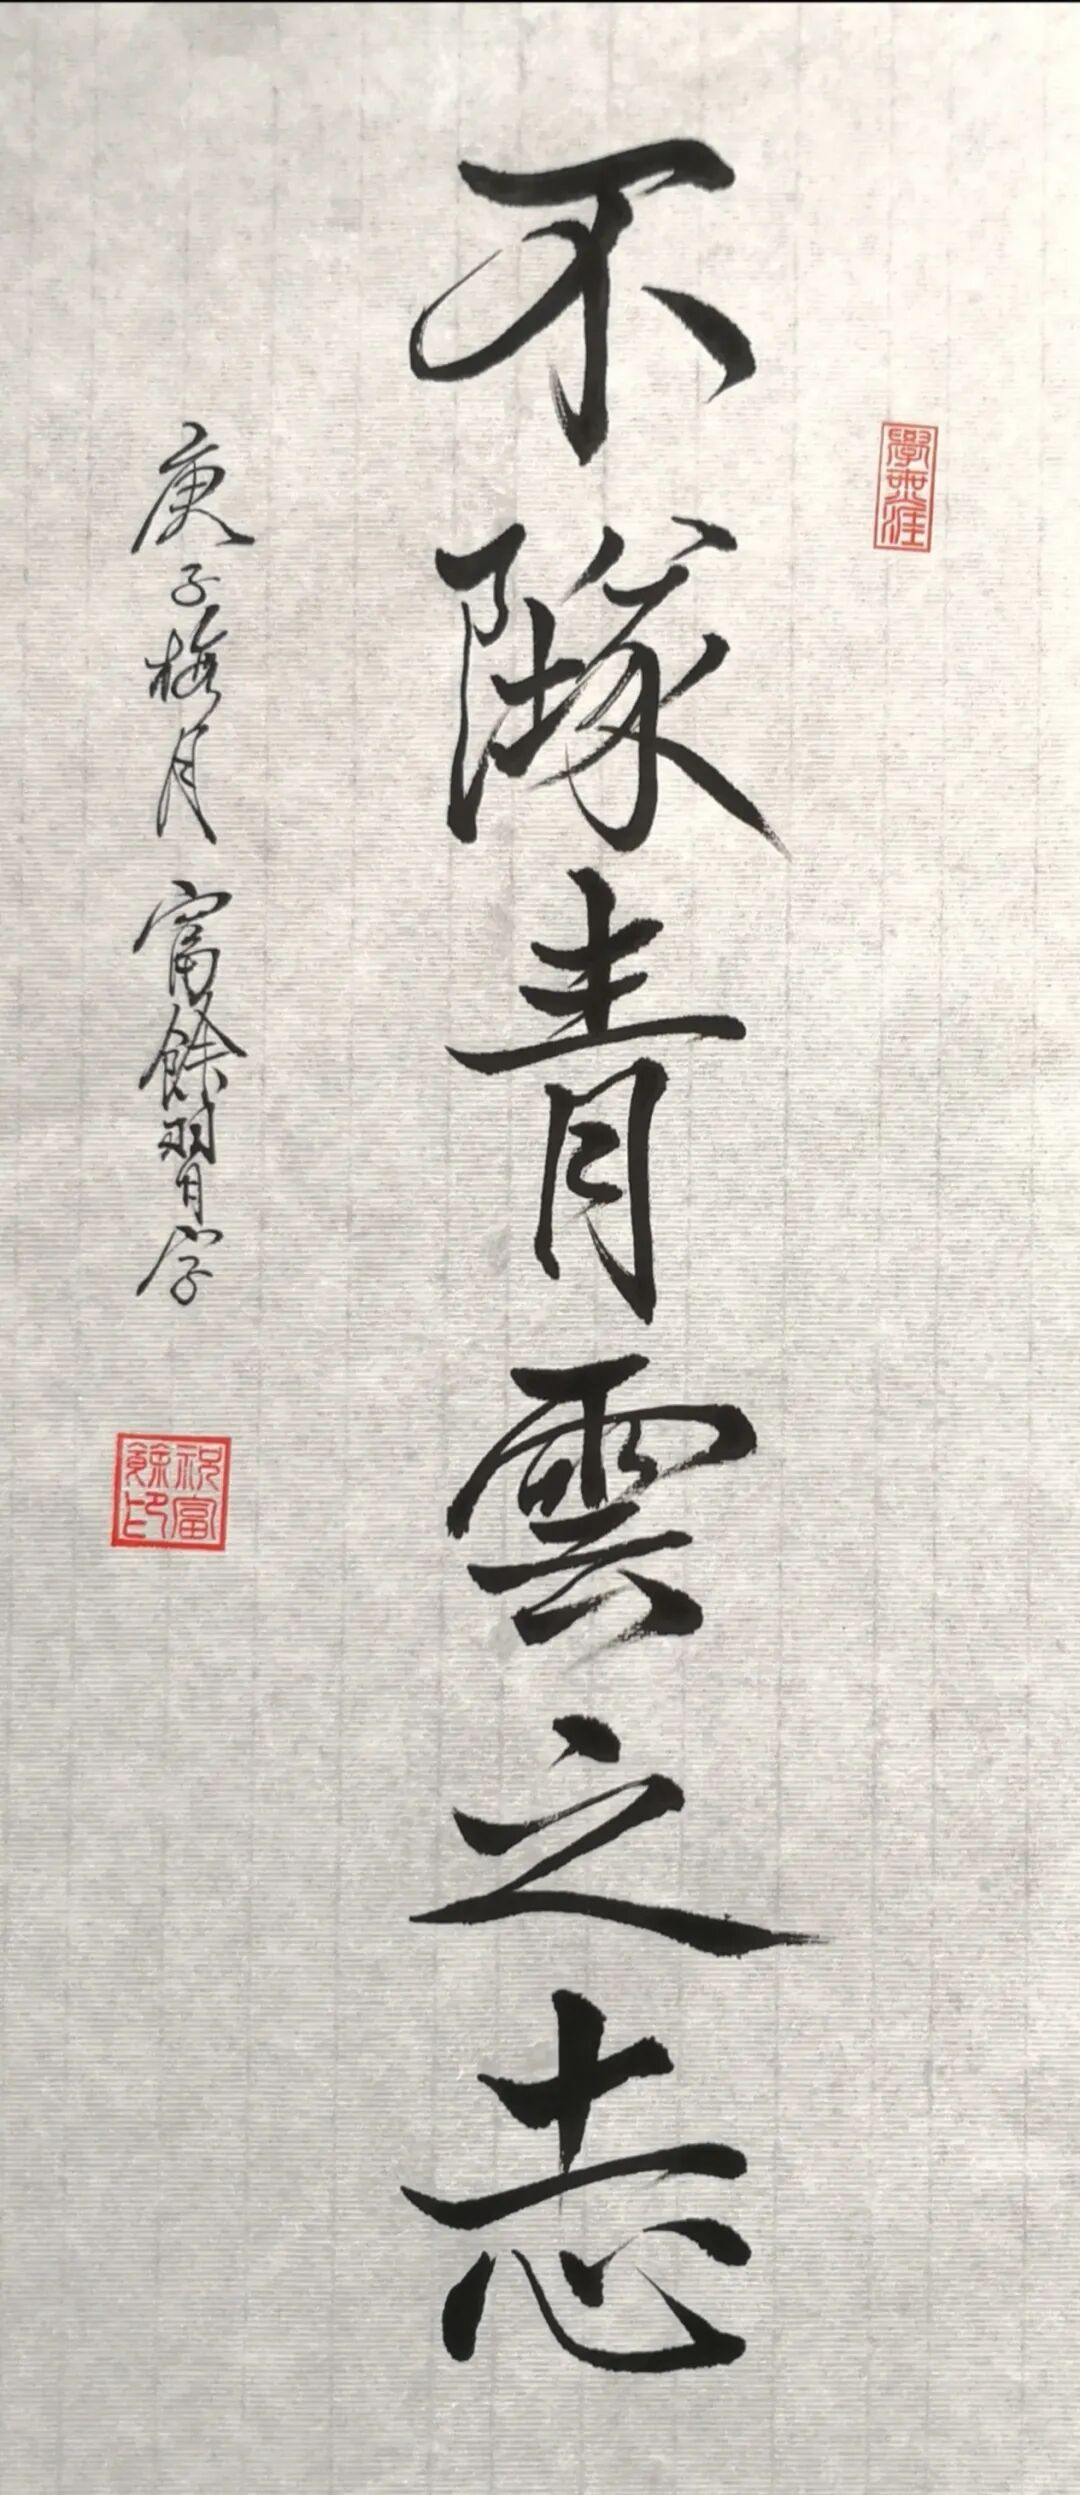 學無涯
不墜青雲之志
庚子梅月富餘習字
祝富
餘印